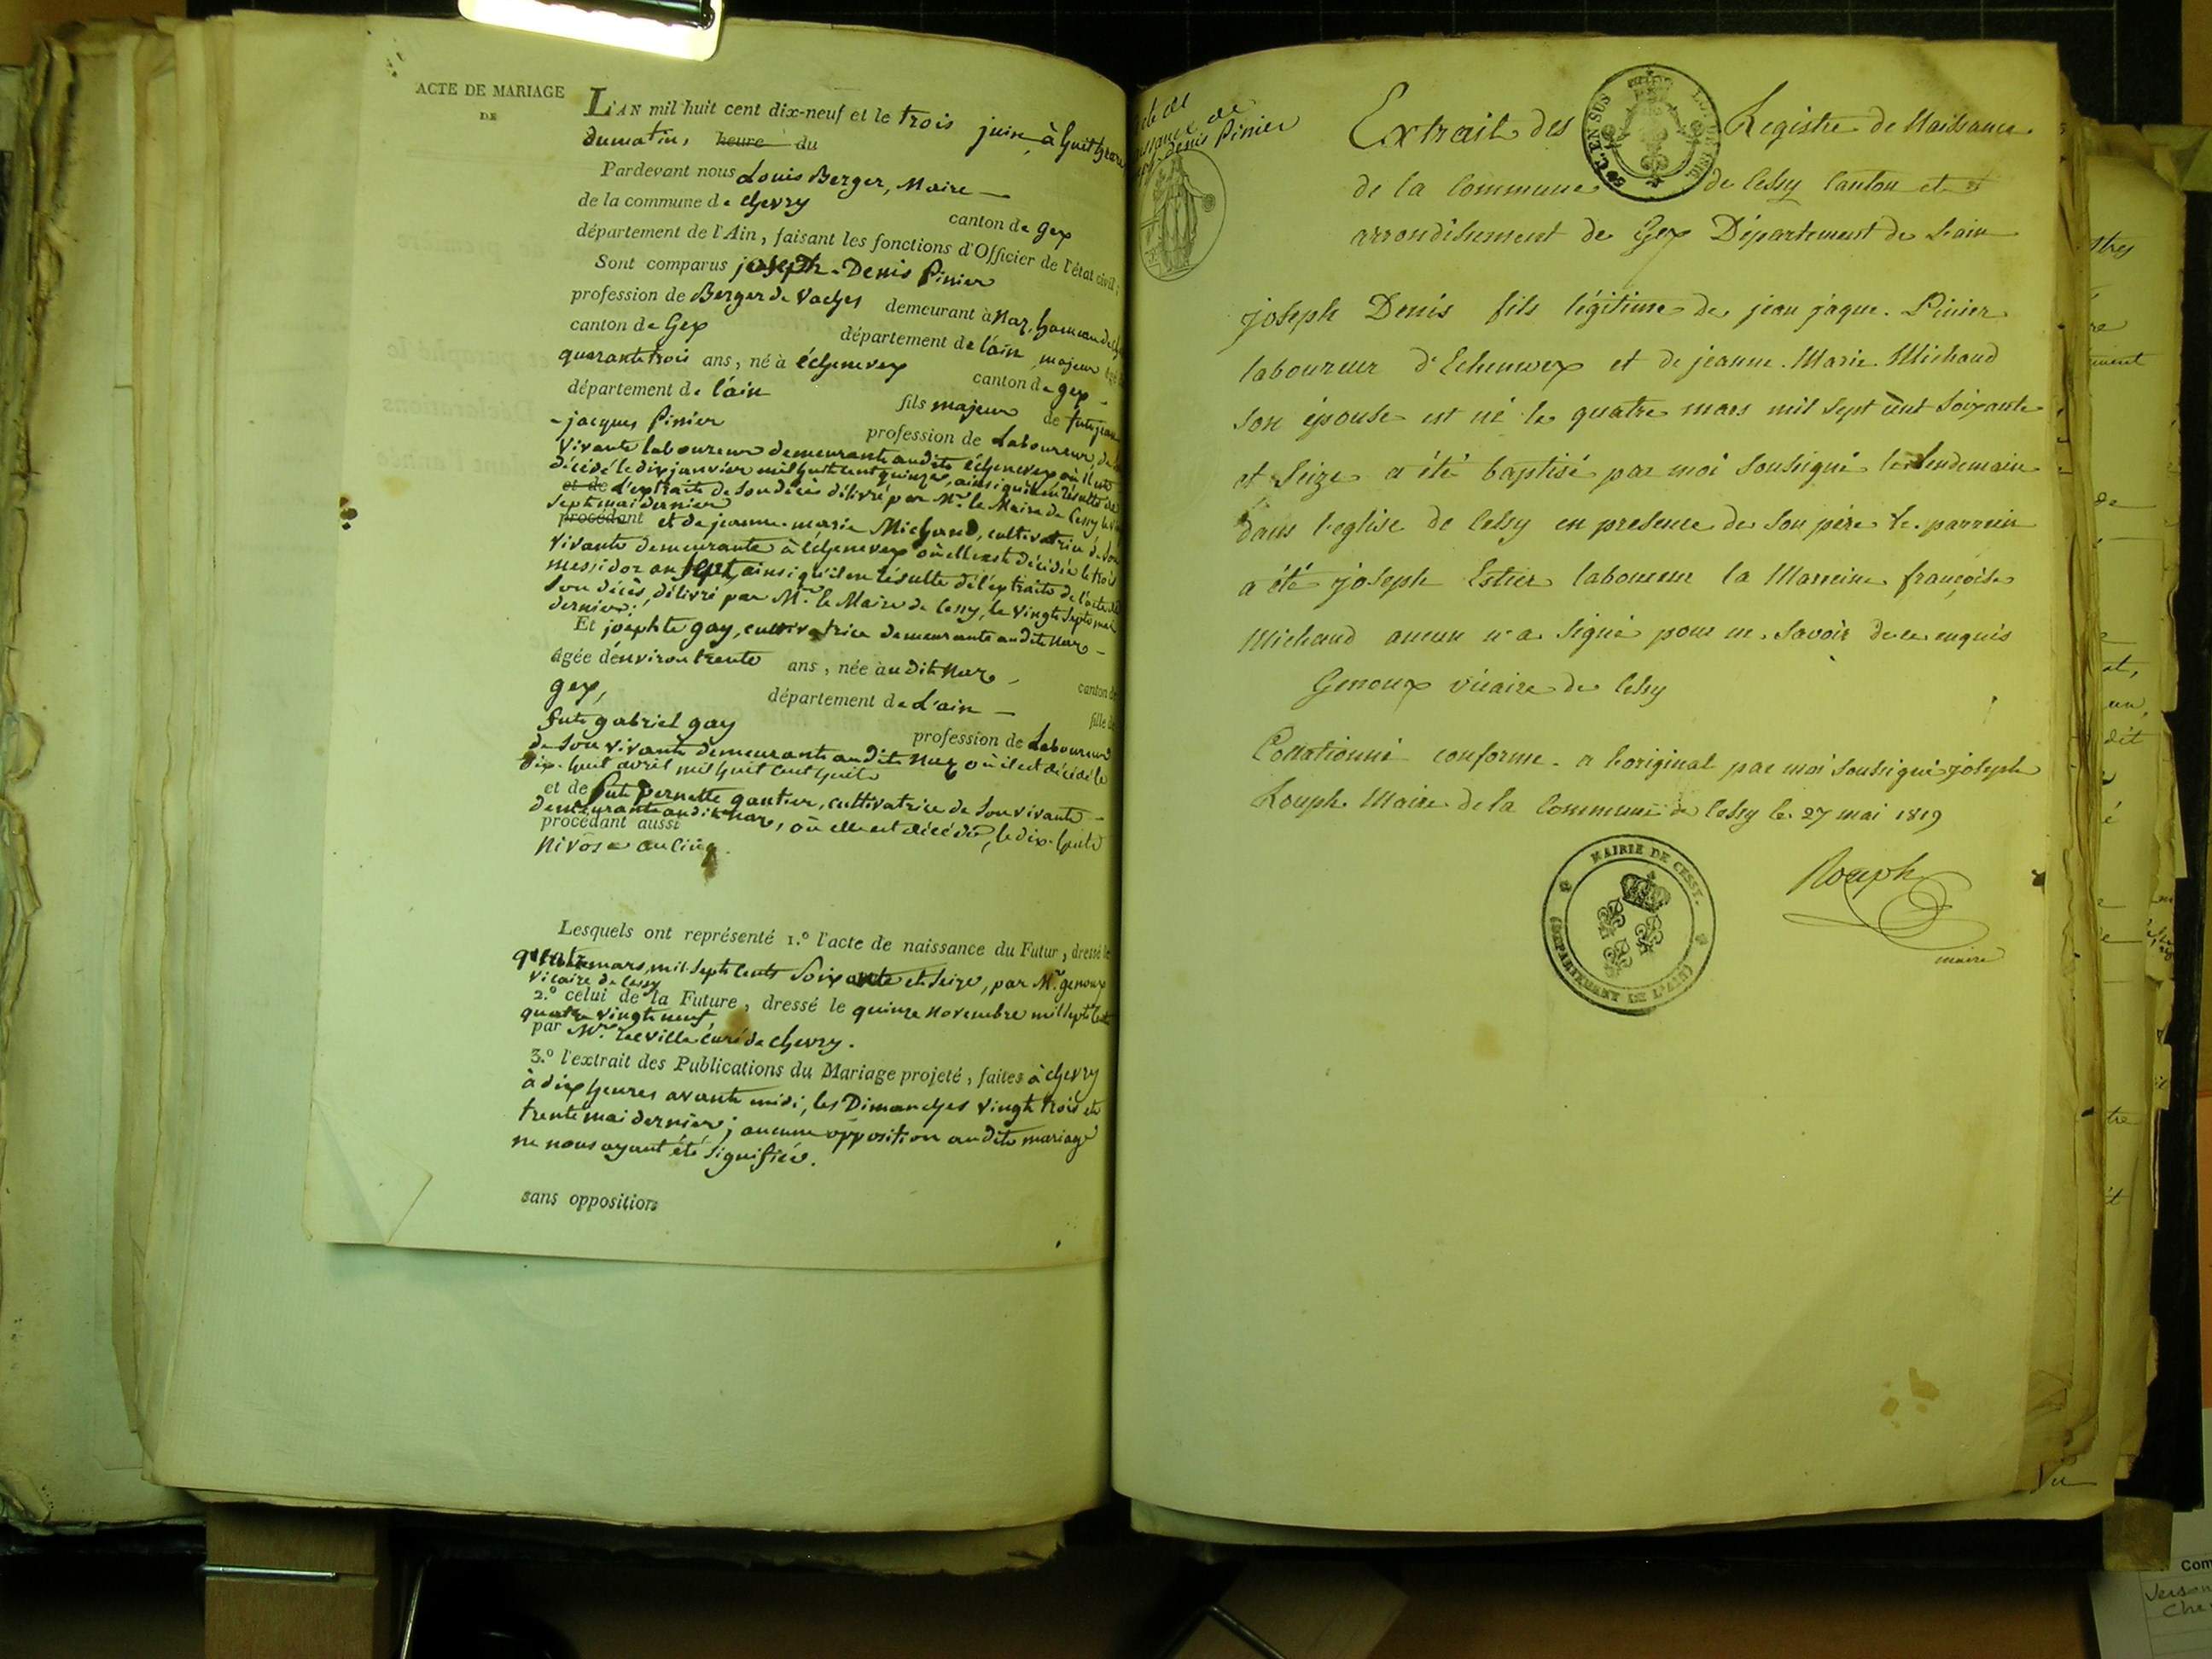 ACTE DE MARIAGE
DE
L'AN mil huit cent dix-neuf et le trois juin à huit heure
du matin, heure du
Pardevant nous Louis Berger, Maire
de la commune de chevry canton de gex
département de l'Ain, faisant les fonctions d'Officier de l'état civil;
Sont comparus joseph-Denis Pinier
profession de Berger de Vaches demeurant à Naz, hameau de
canton de Gex département de l'ain majeur
quarante trois ans, né à échenevex canton de gex
département de l'ain fils majeur de feu jean
-jacques Pinier profession de Laboureur, de
Vivant laboureur demeurant audit échenevex où il est
décédé le dix janvier mil huit cent quinze, ainsi qu'il en résulte de
et de l'extrait de son décès délivré par Mr. le Maire de Cessy le
sept mai dernier
procédant et de jeanne-marie Michaud, cultivatrice de son
vivant demeurante à Echenevex où elle est décédée le trois
messidor an sept, ainsi qu'il en résulte de l'extrait de l'acte de
son décès, délivré par Mr. le Maire de Cessy, le vingt sept mai
dernier;
Et josephte gay, cultivatrice demeurante audit Naz
âgée d'environ trente ans, née audit Naz canton de
gex, département de L'ain fille de
feu gabriel gay profession de Laboureur
de son vivant demeurant audit Naz où il est décédé le
dix-huit avril mil huit cent huit
et de feue Pernette gautier, cultivatrice de son vivant
demeurante audit Naz, où elle est décédée, le dix-huit
procédant aussi
Nivôse an cinq.
Lesquels ont représenté 1.º l'acte de naissance du Futur, dressé le
quatre mars, mil sept cents soixante et seize, par Mr. genoux
vicaire de Cessy
2.º celui de la Future, dressé le quinze novembre mil sept cent
quatre vingt neuf,
par Mr. curé de chevry.
3.º l'extrait des Publications du Mariage projeté, faites à chevry
à dix heures avant midi, les Dimanches vingt trois et
trente mai dernier; aucune opposition audit mariage
ne nous ayant été signifiée.
sans opposition
de
denis Pinier
Extrait des Registre de Naissance
EN SUS
de la commune de Cessy Canton et
arrondissement de Gex Département de Lain
joseph Denis fils légitime de jean jaque Pinier
laboureur d'Echenevex et de jeanne Marie Michaud
son épouse est né le quatre mars mil sept cent soixante
et seize a été baptisé par moi soussigné le lendemain
dans l'eglise de Cessy en presence de son père le parrein
a été joseph Estier laboureur la Marreine françoise
Michaud aucun n'a signé pour ne savoir de ce enquis
Genoux vicaire de Cessy
Collationné conforme a l'original par moi soussigné joseph
Rouph Maire de la Commune de Cessy le 27 mai 1819
MAIRIE DE CESSY.
(DEPARTEMENT DE L'AIN)
Rouph
maire